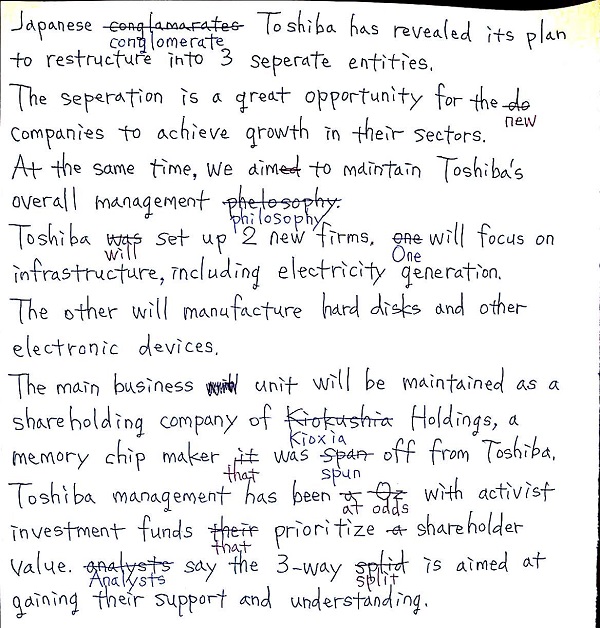 Japanese conglamarates Toshiba has revealed its plan
conglomerate
to restructure into 3 seperate entities.
The seperation is a great opportunity for the do
new
companies to achieve growth in their sectors.
At the same time, we aimed to maintain Toshiba's
overall management phelosophy.
philosophy
Toshiba was set up 2 new firms. one will focus on
will One
infrastructure, including electricity generation.
The other will manufacture hard disks and other
electronic devices.
The main business unit will be maintained as a
shareholding company of Kiokushia Holdings, a
Kioxia
memory chip maker it was span off from Toshiba.
that spun
Toshiba management has been a Oz with activist
at odds
investment funds their prioritize a shareholder
that
value. analysts say the 3-way splid is aimed at
Analysts split
gaining their support and understanding.